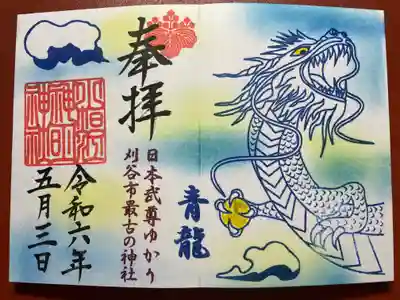 奉拝
青龍
日本武尊ゆかり
刈谷市最古の神社
小垣江
神明
神社
令和六年
五月三日